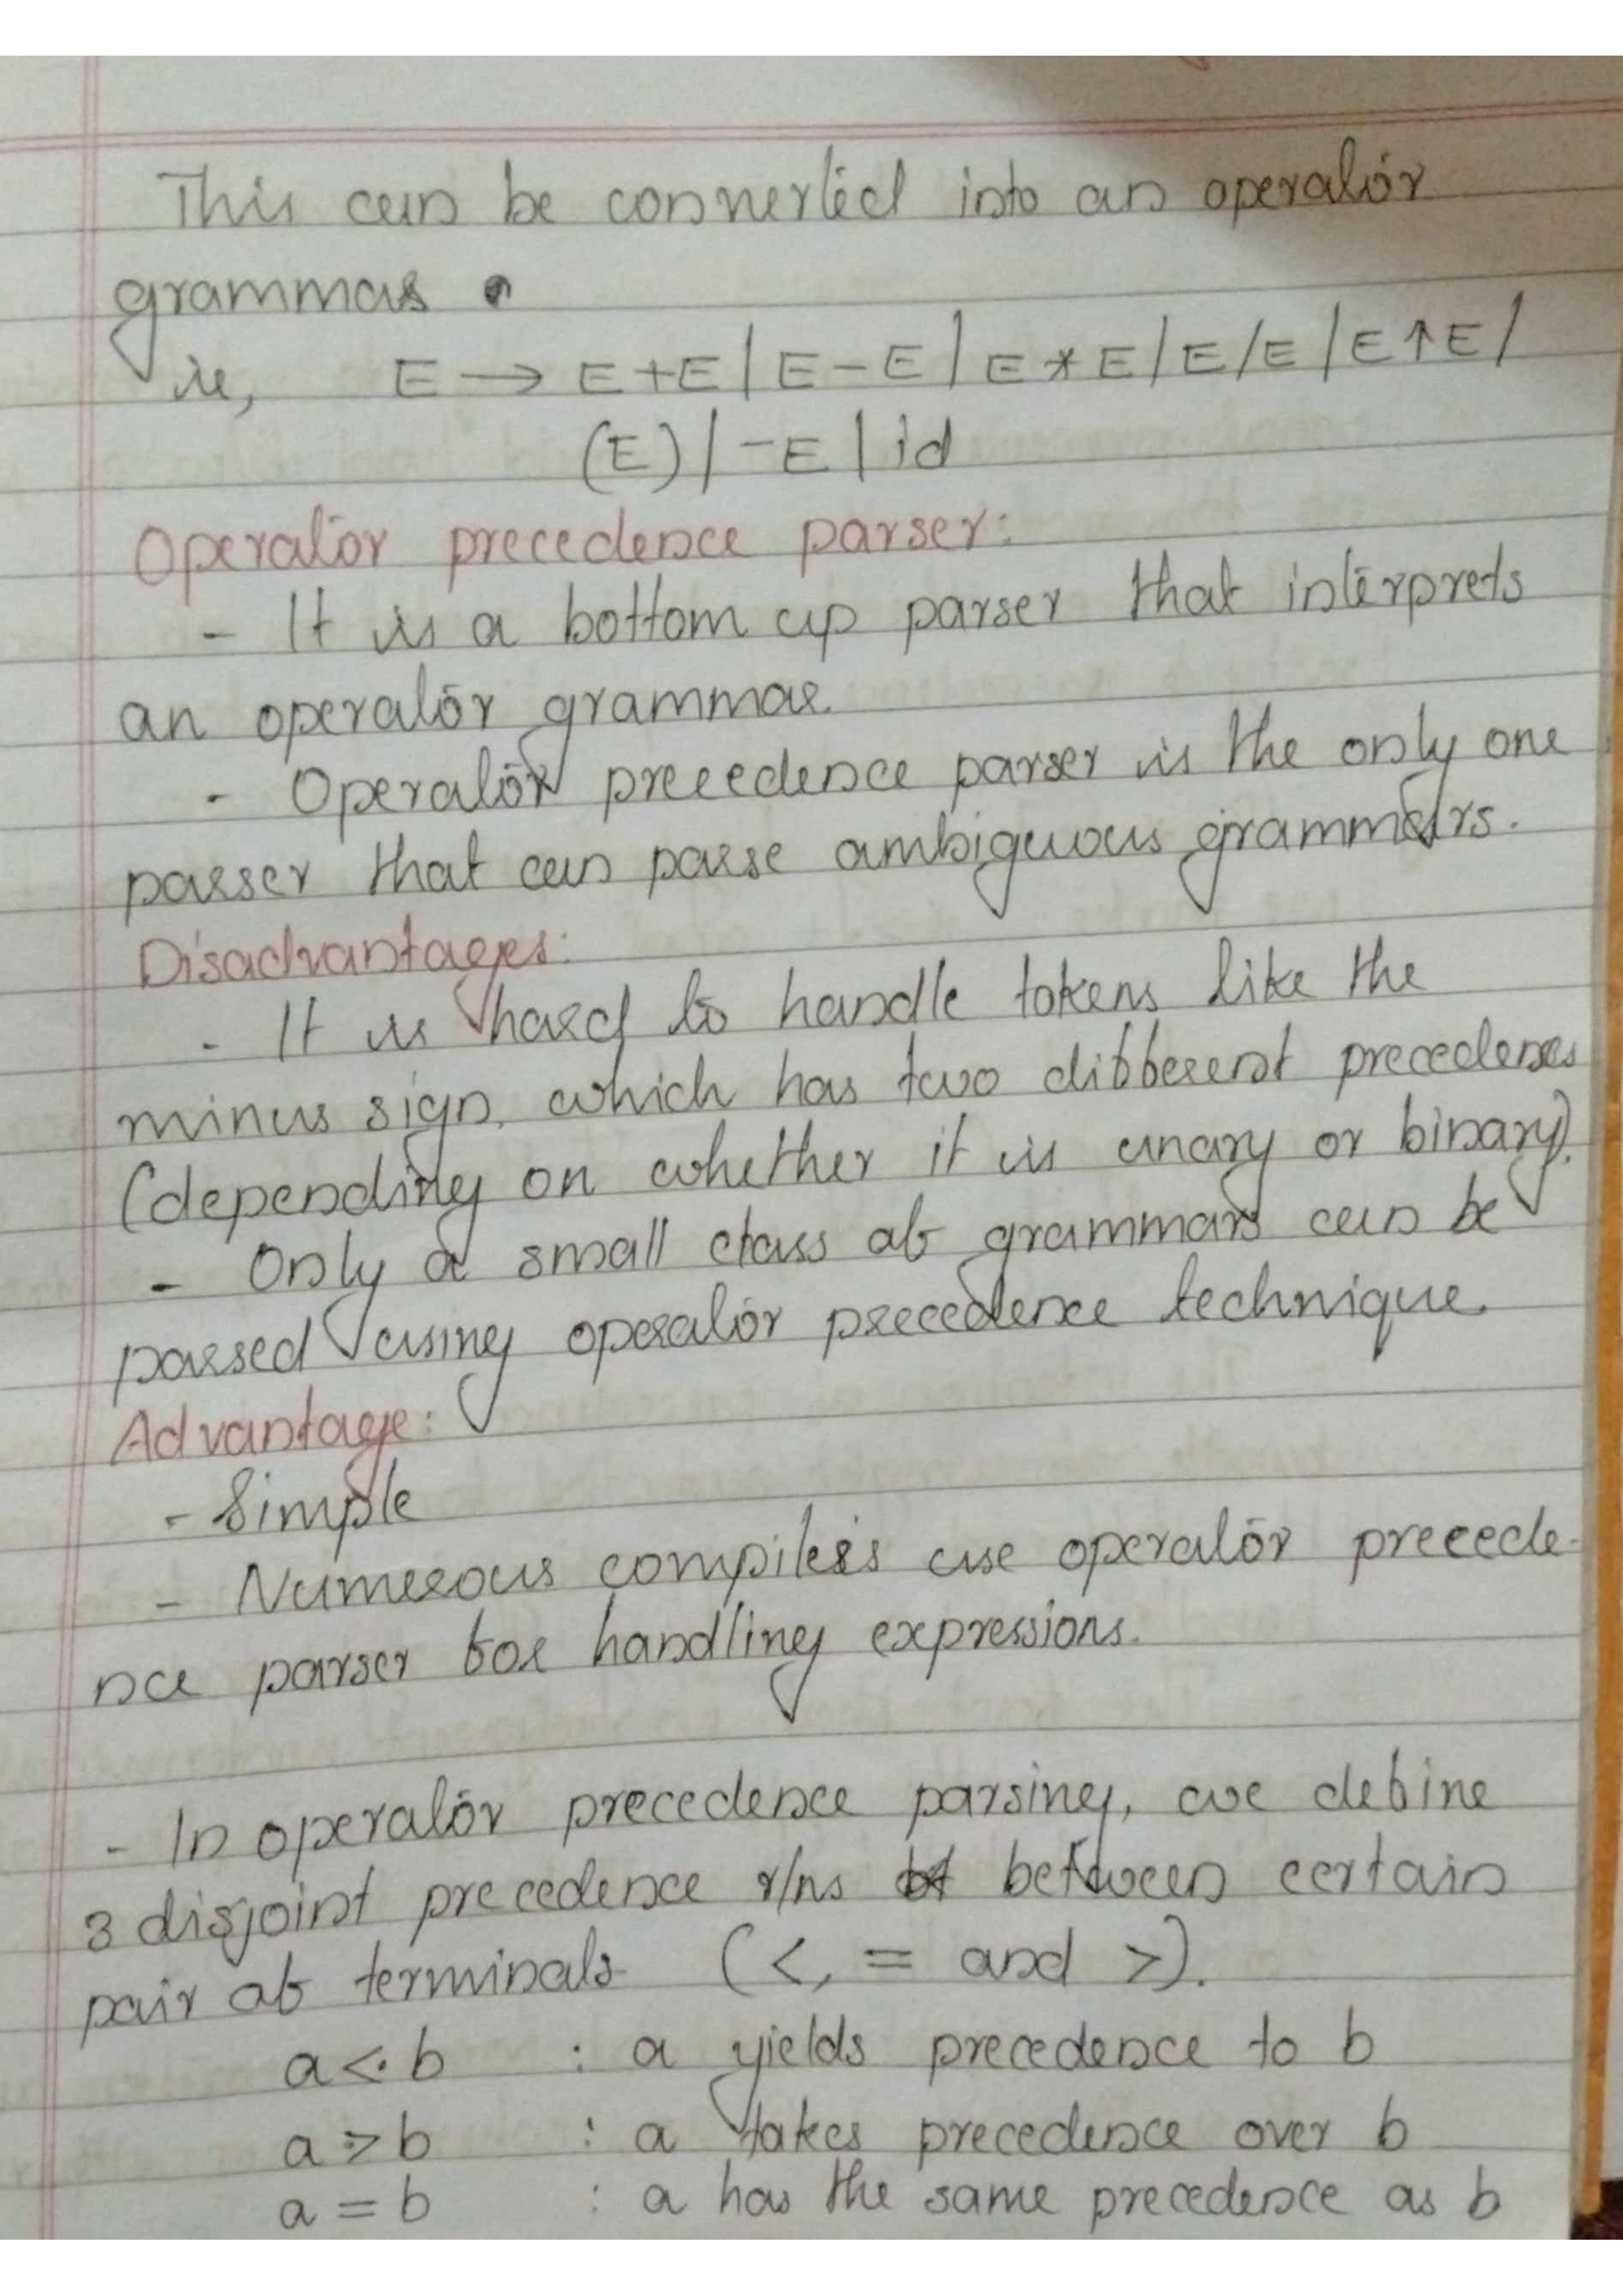 This can be converted into an operator
grammar.
ie, E → E+E | E-E | E*E | E/E | E↑E |
(E) | -E | id
Operator precedence parser:
- It is a bottom up parser that interprets
an operator grammar.
- Operator precedence parser is the only one
parser that can parse ambiguous grammars.
Disadvantages:
- It is hard to handle tokens like the
minus sign, which has two different precedences
(depending on whether it is unary or binary).
- Only a small class of grammars can be
parsed using operator precedence technique.
Advantage:
- Simple
- Numerous compilers use operator precede-
nce parser for handling expressions.
- In operator precedence parsing, we define
3 disjoint precedence r/ns between certain
pair of terminals (<, = and >).
a <· b : a yields precedence to b
a ·> b : a takes precedence over b
a = b : a has the same precedence as b